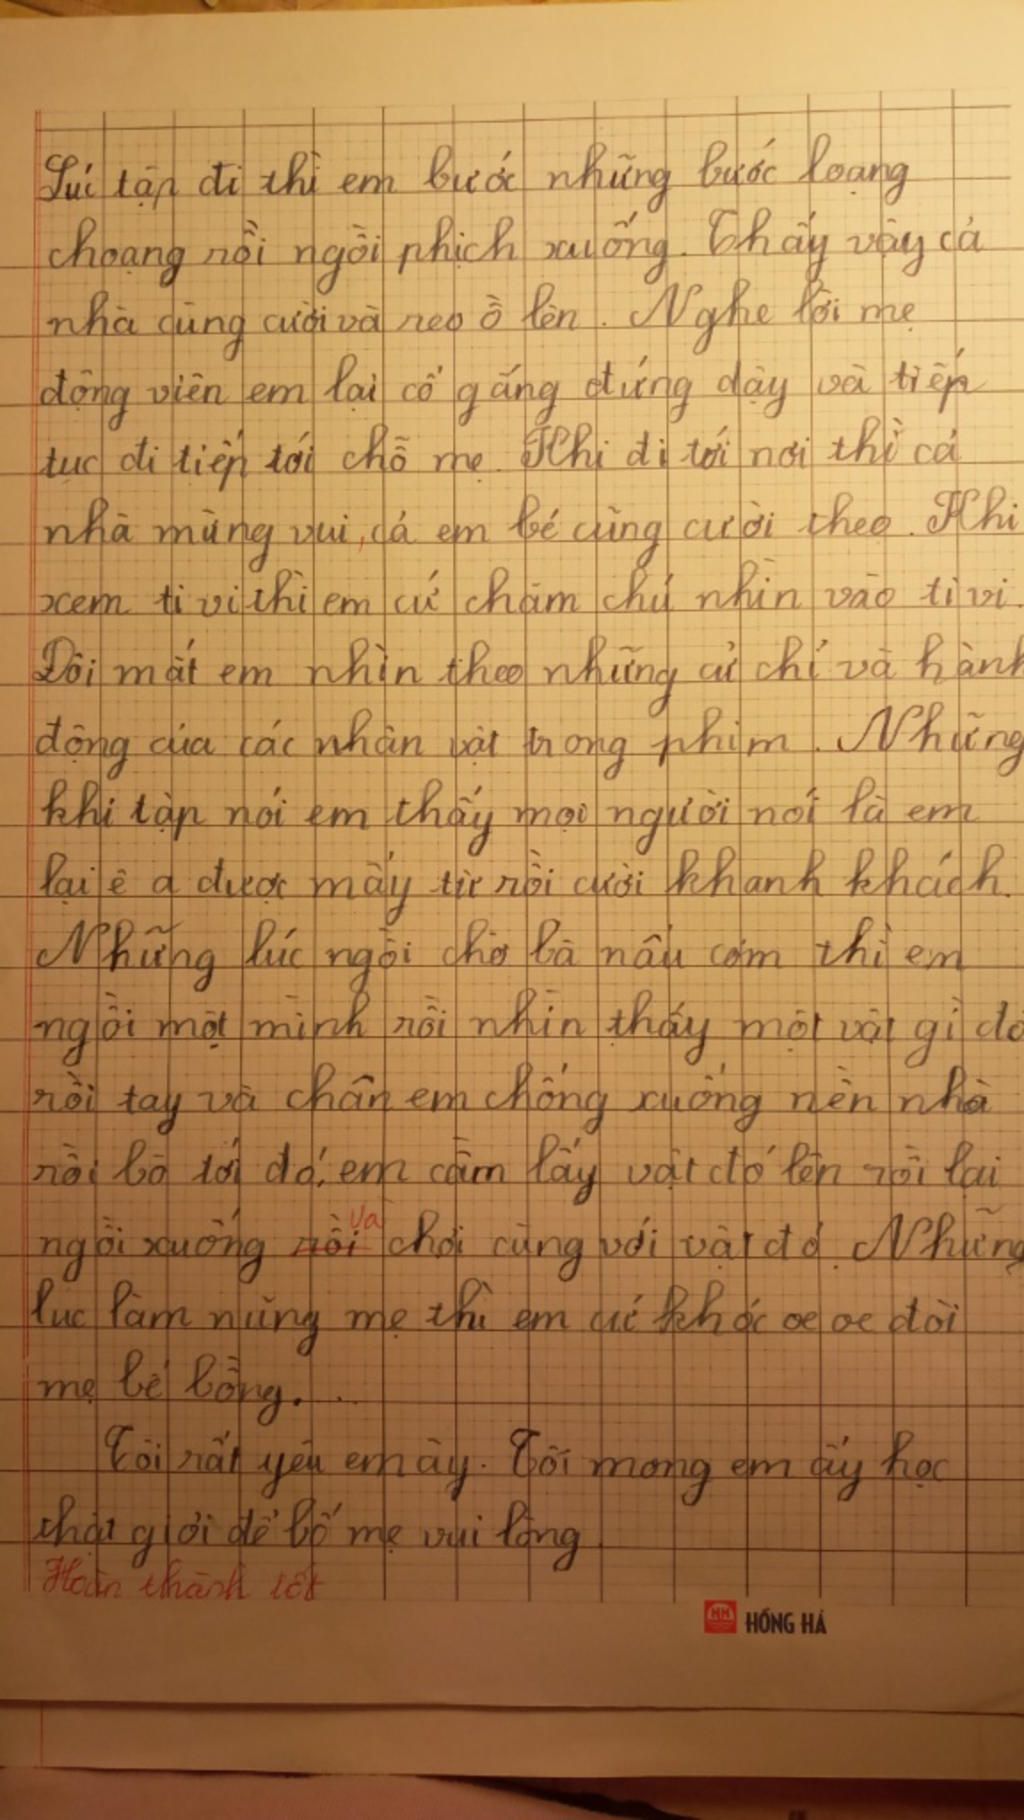 Lúc tập đi thì em bước những bước loạng
choạng rồi ngồi phịch xuống. Thấy vậy cả
nhà cùng cười và reo ồ lên. Nghe lời mẹ
động viên em lại cố gắng đứng dậy và tiếp
tục đi tiếp tới chỗ mẹ. Khi đi tới nơi thì cả
nhà mừng vui, cả em bé cũng cười theo. Khi
xem ti vi thì em cứ chăm chú nhìn vào ti vi.
Đôi mắt em nhìn theo những cử chỉ và hành
động của các nhân vật trong phim. Những
khi tập nói em thấy mọi người nói là em
lại ê a được mấy từ rồi cười khanh khách.
Những lúc ngồi chờ bà nấu cơm thì em
ngồi một mình rồi nhìn thấy một vật gì đó
rồi tay và chân em chống xuống nền nhà
rồi bò tới đó, em cầm lấy vật đó lên rồi lại
ngồi xuống rồi và chơi cùng với vật đó. Những
lúc làm nũng mẹ thì em cứ khóc oe oe đòi
mẹ bế bồng....
Tôi rất yêu em ấy. Tôi mong em ấy học
thật giỏi để bố mẹ vui lòng
Hoàn thành tốt
HỒNG HÀ